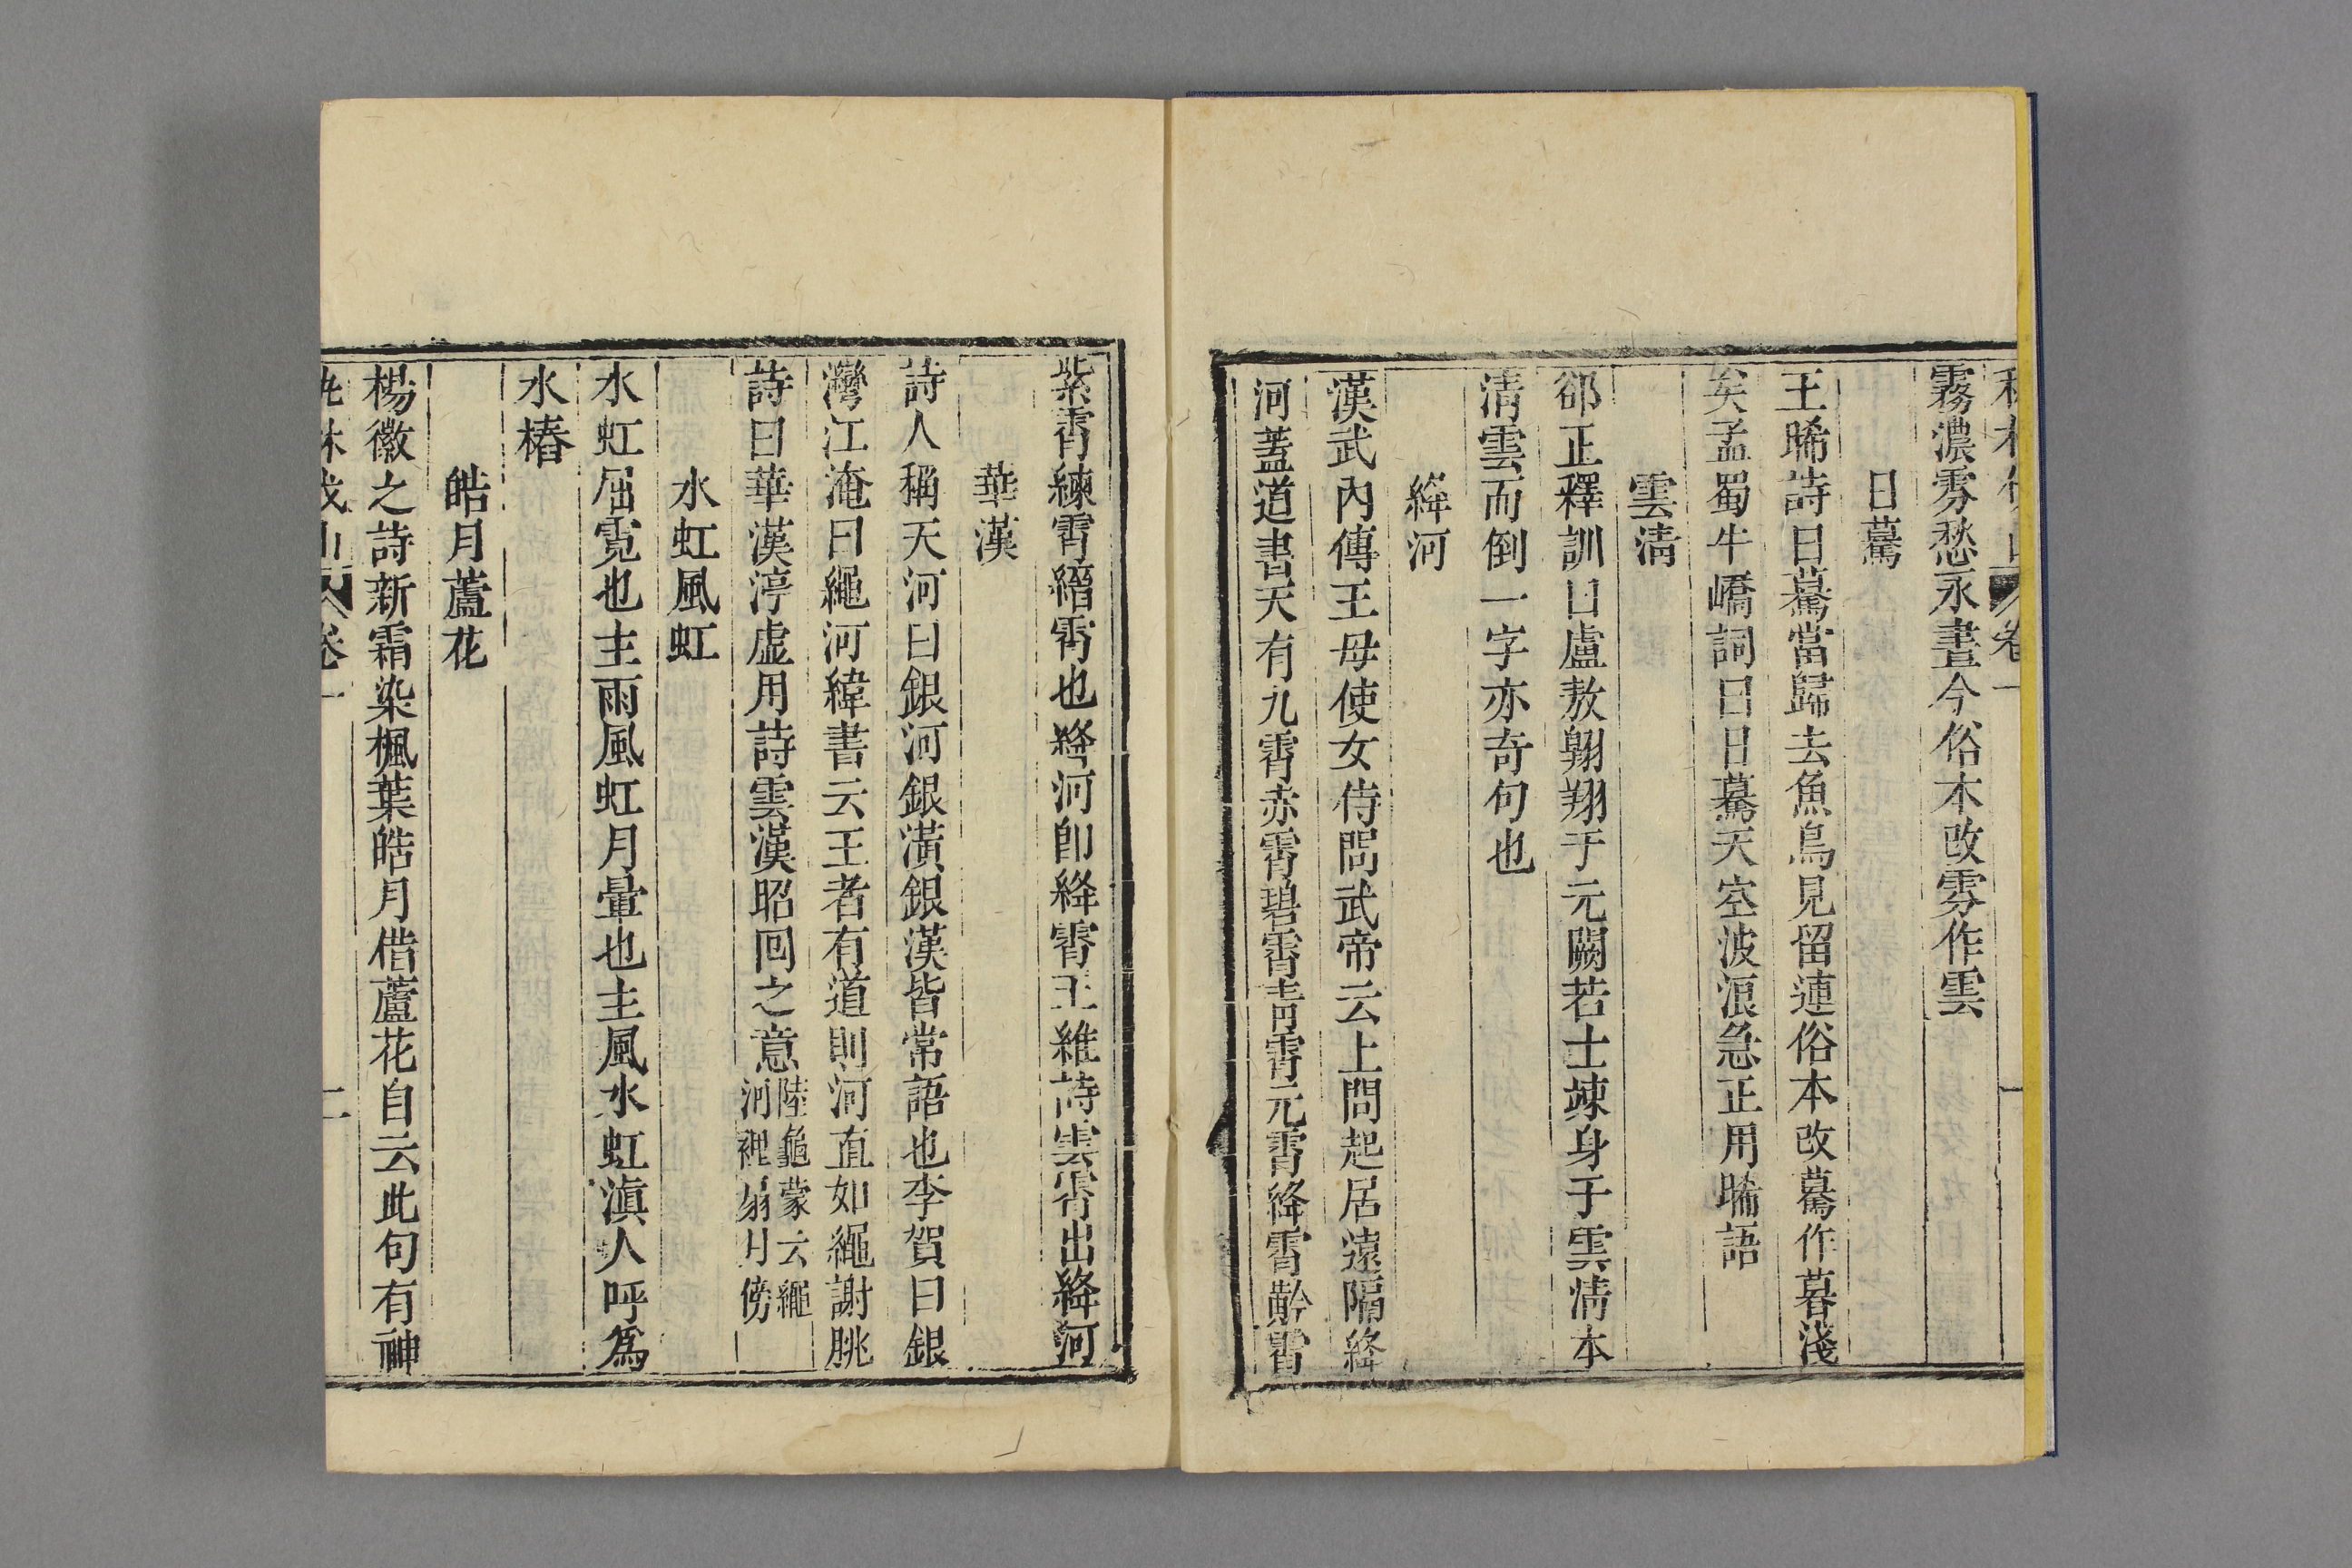 霧濃雰愁永晝今俗本改雰作雲
日驀
王晞詩日驀當歸去魚鳥見留連俗本改驀作暮淺
矣孟蜀牛嶠詞曰日驀天空波浪急正用晞語
雲淸
郤正釋訓曰盧敖翺翔于元闕若士竦身于雲淸本
淸雲而倒一字亦奇句也
絳河
漢武內傳王母使女侍問武帝云上問起居遠隔絳
河蓋道書天有九霄赤霄碧霄靑霄元霄絳霄黅霄
紫霄練霄縉霄也絳河卽絳霄王維詩雲霄出絳河
華漢
詩人稱天河曰銀河銀潢銀漢皆常語也李賀曰銀
灣江淹曰繩河緯書云王者有道則河直如繩謝朓
詩曰華漢渟虛用詩雲漢昭回之意陸龜蒙云繩河裡扇月傍
水虹風虹
水虹屈霓也主雨風虹月暈也主風水虹滇人呼爲
水樁
皓月蘆花
楊徽之詩新霜染楓葉皓月借蘆花自云此句有神
卷一
二